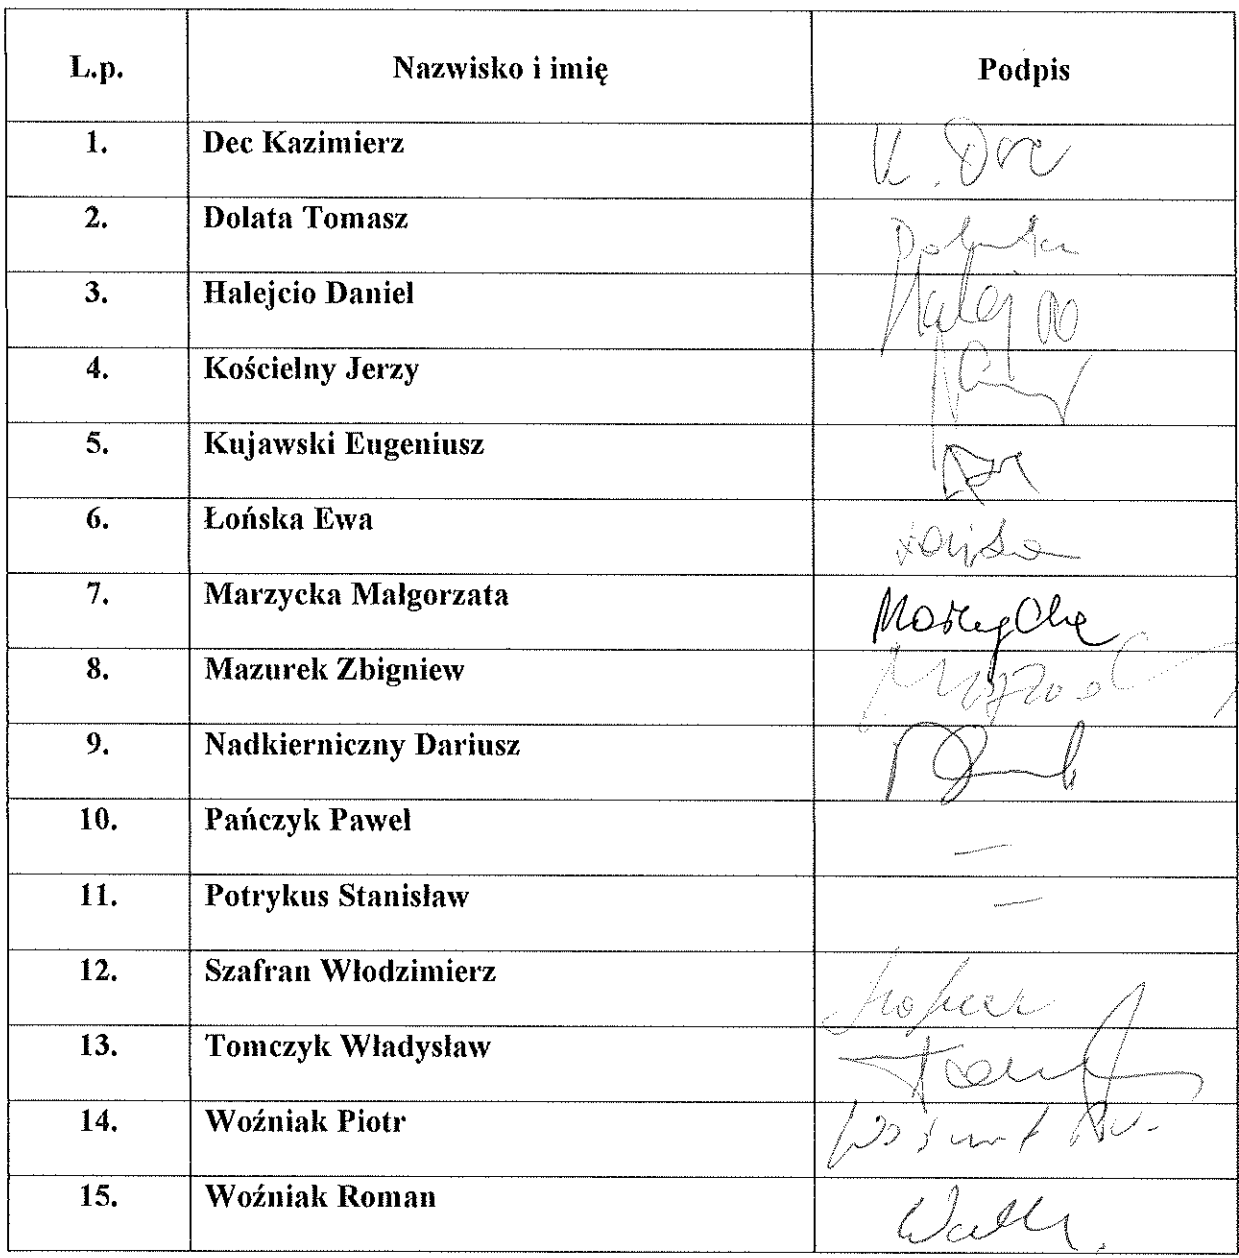 L.p. Nazwisko i imię Podpis
1. Dec Kazimierz K. Dec
2. Dolata Tomasz Dolata
3. Halejcio Daniel Halejcio
4. Kościelny Jerzy
5. Kujawski Eugeniusz
6. Łońska Ewa Łońska
7. Marzycka Małgorzata Marzycka
8. Mazurek Zbigniew
9. Nadkierniczny Dariusz
10. Pańczyk Paweł —
11. Potrykus Stanisław —
12. Szafran Włodzimierz Szafran
13. Tomczyk Władysław
14. Woźniak Piotr
15. Woźniak Roman